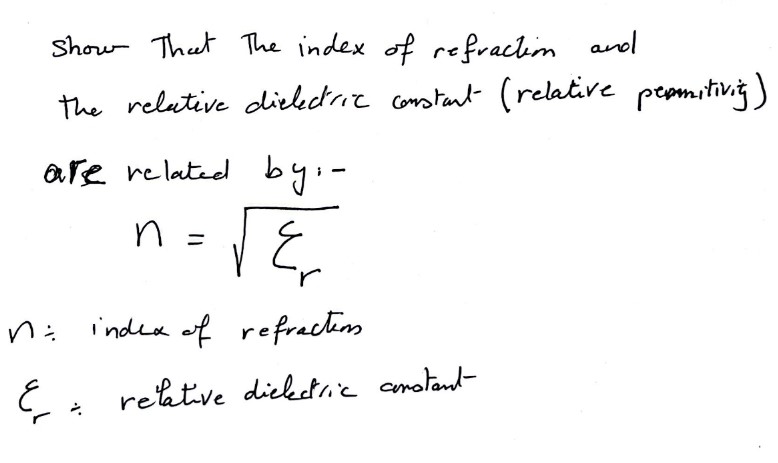 Show That The index of refraction and
the relative dielectric constant (relative permitivity)
are related by:-
n = √εr
n÷ index of refraction
εr ÷ relative dielectric constant